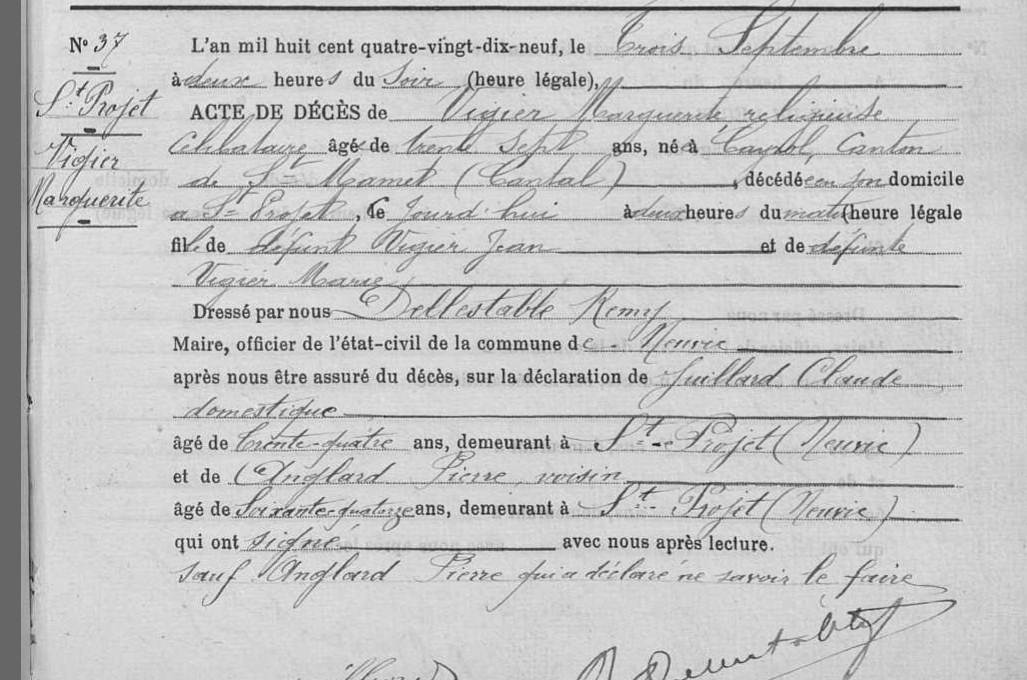 N° 37
St Projet
Vigier
Marguerite
L'an mil huit cent quatre-vingt-dix-neuf, le Trois Septembre
à deux heures du soir (heure légale),
ACTE DE DÉCÈS de Vigier Marguerite religieuse
Célibataire âgée de trente sept ans, née à Cayrol, Canton
de St Mamet (Cantal), décédée en son domicile
a St Projet, ce jourd'hui à deux heures du matin (heure légale
fille de défunt Vigier Jean et de défunte
Vigier Marie
Dressé par nous Dellestable Remy
Maire, officier de l'état-civil de la commune de Neuvic
après nous être assuré du décès, sur la déclaration de Juillard Claude
domestique
âgé de trente-quatre ans, demeurant à St Projet (Neuvic)
et de Anglard Pierre, voisin
âgé de Soixante-quatorze ans, demeurant à St Projet (Neuvic)
qui ont signé avec nous après lecture.
sauf Anglard Pierre qui a déclaré ne savoir le faire